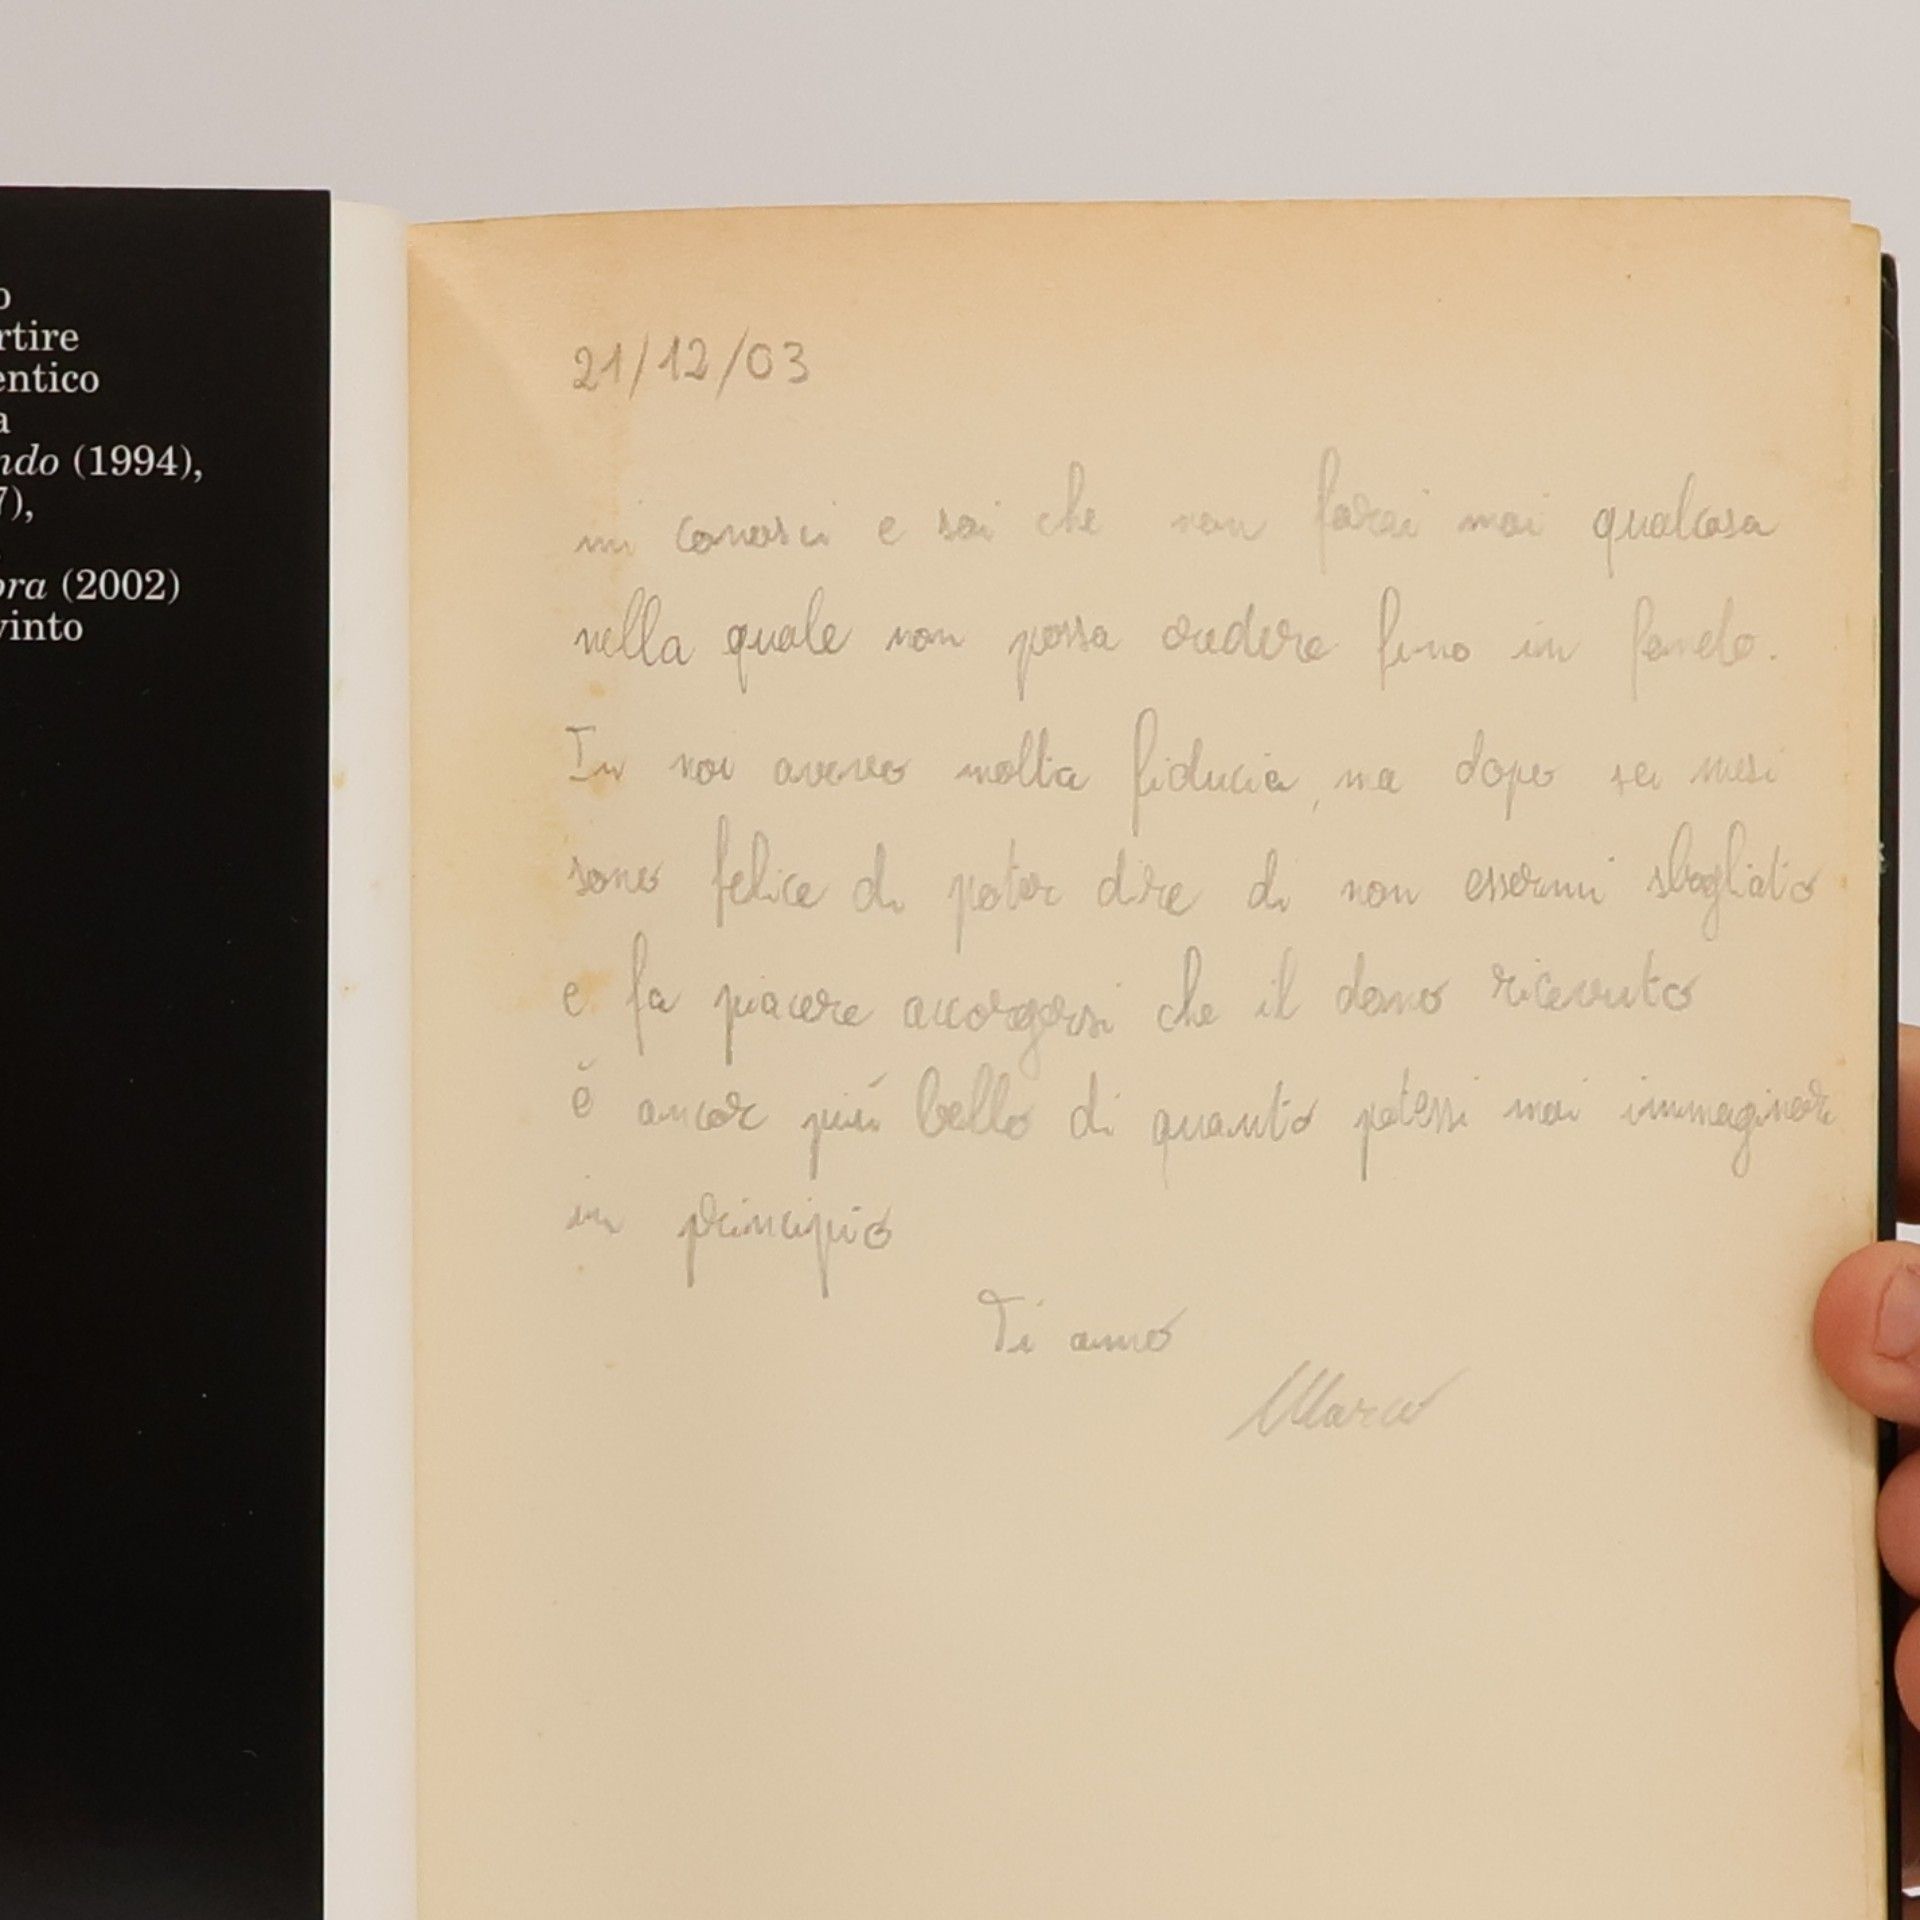 o
rtire
entico
a
ndo (1994),
7),
ora (2002)
vinto
21/12/03
mi conosci e sai che non farei mai qualcosa
nella quale non possa credere fino in fondo.
In noi avevo molta fiducia, ma dopo sei mesi
sono felice di poter dire di non essermi sbagliato
e fa piacere accorgersi che il dono ricevuto
è ancor più bello di quanto potessi mai immaginare
in principio
Ti amo
Marco